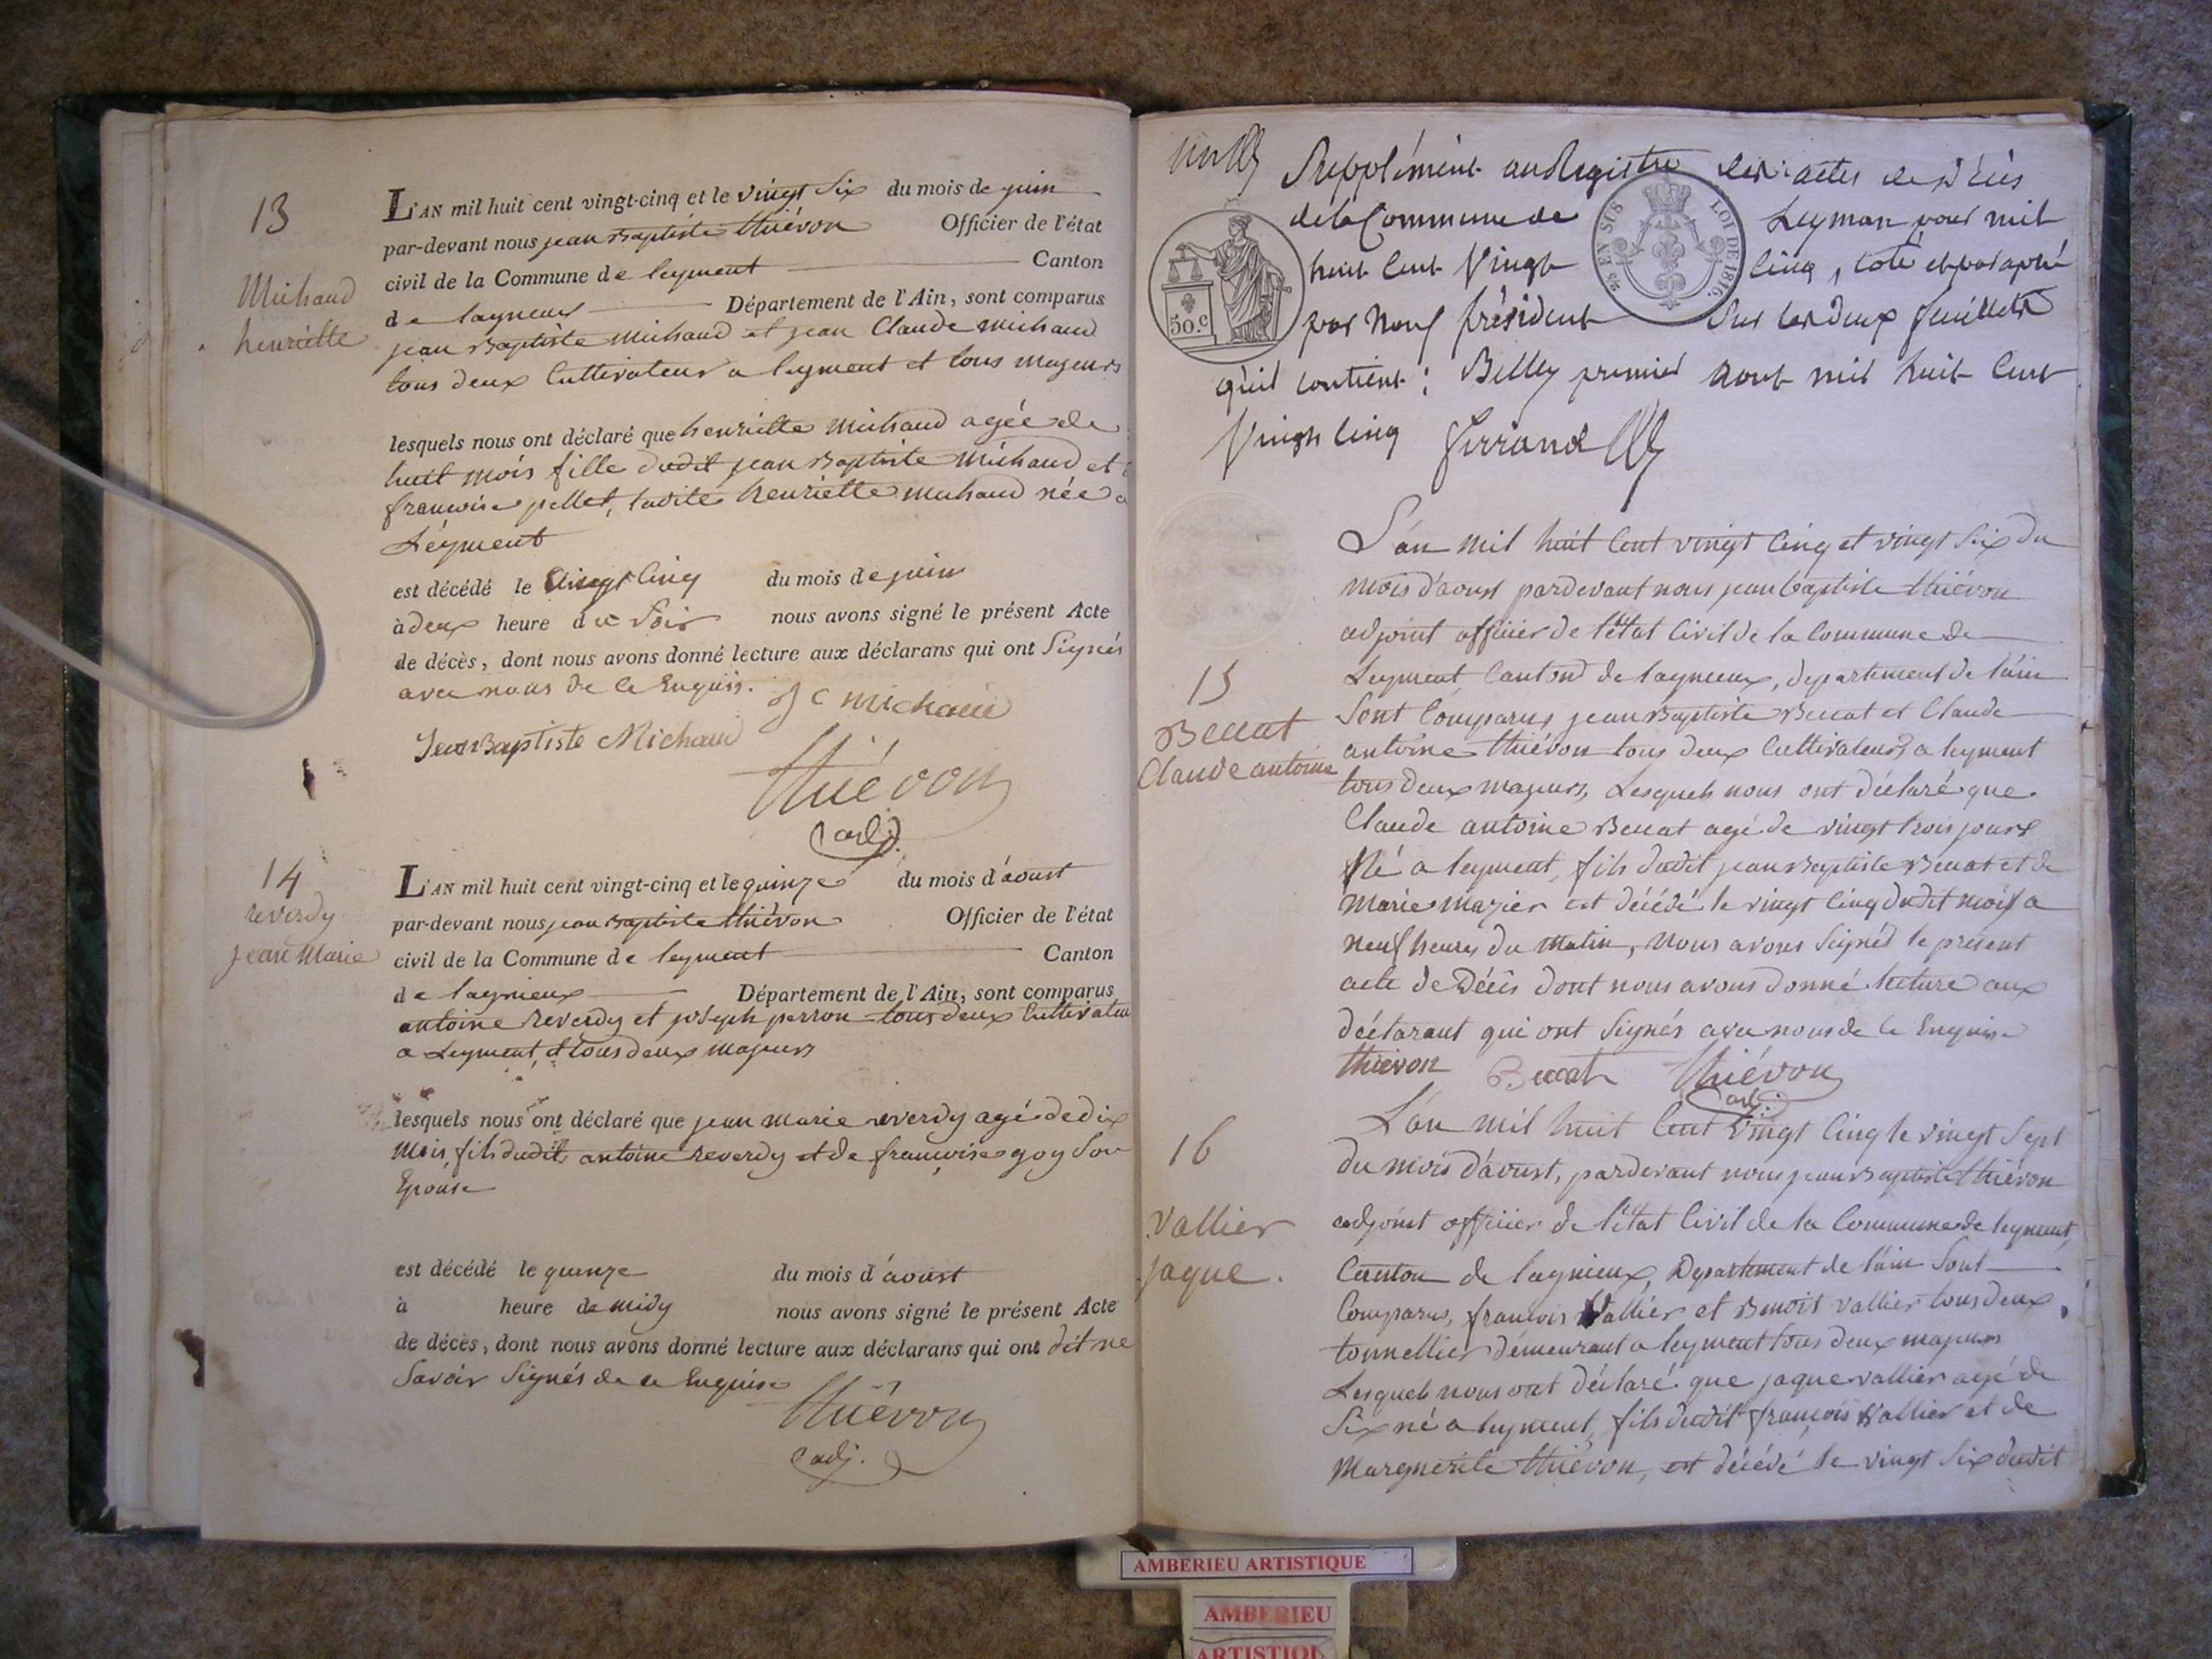 13
Michaud
henriette
L'AN mil huit cent vingt-cinq et le vingt Six du mois de juin
par-devant nous jean Baptiste thiévon Officier de l'état
civil de la Commune de leyment Canton
de lagneux Département de l'Ain, sont comparus
jean Baptiste michaud et jean Claude michaud
tous deux Cultivateur a leyment et tous majeurs
lesquels nous ont déclaré que henriette michaud agée de
huit mois fille dudit jean Baptiste michaud et
francoise pellet, ladite henriette michaud née a
Léyment
est décédé le vingt Cinq du mois de juin
à deux heure du Soir nous avons signé le présent Acte
de décès, dont nous avons donné lecture aux déclarans qui ont Signés
avec nous de ce Enquis. J C michaud
Jean Baptiste Michaud
thiévon
adj.
14
reverdy
jean Marie
L'AN mil huit cent vingt-cinq et le quinze du mois d'aoust
par-devant nous jean Baptiste thiévon Officier de l'état
civil de la Commune de leyment Canton
de lagnieux Département de l'Ain, sont comparus
antoine reverdy et joseph perron tous deux Cultivateu
a Leyment, et tous deux majeurs
lesquels nous ont déclaré que jean marie reverdy agé de dix
mois, fils dudit antoine reverdy et de francoise goy Son
Epouse
est décédé le quinze du mois d'aoust
à heure de midy nous avons signé le présent Acte
de décès, dont nous avons donné lecture aux déclarans qui ont dit ne
Savoir Signés de ce Enquise
thiévon
adj.
Supplément au Registre des actes de Décès
de la Commune de Leyman pour mil
huit Cent Vingt Cinq, coté et paraphé
par Nous président Sur les deux feuillets
qu'il contient; Belley premier Aout mil huit Cent
Vingt Cinq Ferrand
50.C
EN SUS
LOI DE 1816.
L'an mil huit Cent vingt Cinq et vingt Six du
mois d'aoust pardevant nous jean baptiste thiévon
adjoint officier de l'état Civil de la Commune de
Leyment, Canton de lagneux, departement de l'ain
Sont Comparus jean Baptiste Beccat et Claude
antoine thiévon tous deux Cultivateurs a leyment
tous deux majeurs, Lesquels nous ont déclaré que
Claude antoine Beccat agé de vingt trois jours
Né a leyment, fils dudit jean Baptiste Beccat et de
Marie mazier est décédé le vingt Cinq dudit mois a
neuf heures du matin, Nous avons Signés le présent
acte de Décès dont nous avons donné lecture aux
déclarant qui ont Signés avec nous de ce Enquise
thiévon Beccat thiévon
adj.
15
Beccat
Claude antoine
16
Vallier
jaque.
L'an mil huit Cent vingt Cinq le vingt Sept
du mois d'aoust, pardevant nous jean Baptiste thiévon
adjoint officier de l'état Civil de la Commune de leyment,
Canton de lagnieux, Departement de l'ain Sont
Comparus, francois Vallier et Benoit Vallier tous deux
tonnellier demeurant a leyment tous deux majeurs
Lesquels nous ont déclaré que jaque vallier agé de
Six né a leyment, fils dudit françois Vallier et de
Marguerite thiévon, est décédé le vingt Six dudit
AMBERIEU ARTISTIQUE
AMBERIEU
ARTISTIQU